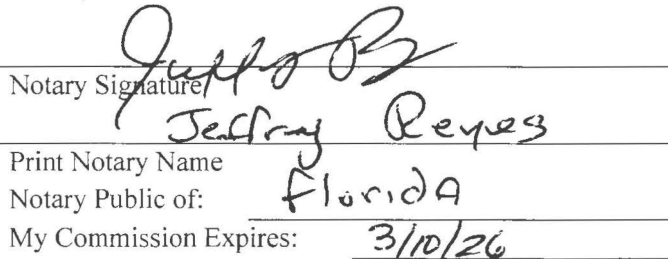 Notary Signature
Jeffrey Reyes
Print Notary Name
Notary Public of: Florida
My Commission Expires: 3/10/26